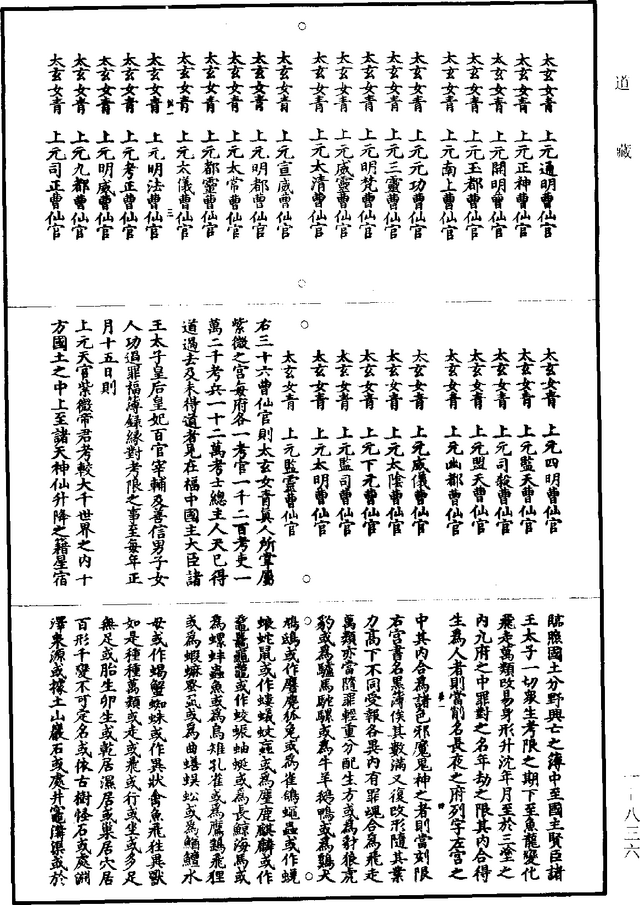 道藏
太玄女青　上元通明曹仙官
太玄女青　上元正神曹仙官
太玄女青　上元開明曹仙官
太玄女青　上元玉都曹仙官
太玄女青　上元南上曹仙官
太玄女青　上元元功曹仙官
太玄女青　上元三靈曹仙官
太玄女青　上元明梵曹仙官
太玄女青　上元威靈曹仙官
太玄女青　上元太清曹仙官
太玄女青　上元宣威曹仙官
太玄女青　上元明都曹仙官
太玄女青　上元太常曹仙官
太玄女青　上元都靈曹仙官
太玄女青　上元太儀曹仙官
太玄女青　上元明法曹仙官
太玄女青　上元考正曹仙官
太玄女青　上元明威曹仙官
太玄女青　上元九都曹仙官
太玄女青　上元司正曹仙官
太玄女青　上元四明曹仙官
太玄女青　上元監天曹仙官
太玄女青　上元司殺曹仙官
太玄女青　上元盟天曹仙官
太玄女青　上元幽都曹仙官
太玄女青　上元威儀曹仙官
太玄女青　上元太陰曹仙官
太玄女青　上元下元曹仙官
太玄女青　上元監司曹仙官
太玄女青　上元太明曹仙官
太玄女青　上元監靈曹仙官
右三十六曹仙官則太玄女青眞人所掌屬
紫微之宮每府各一考官一千二百考吏一
萬二千考兵一十二萬考士總主人天已得
道過去及未得道者見在福中國主大臣諸
王太子皇后皇妃百官宰輔及善信男子女
人功過罪福薄錄緣對考限之事至每年正
月十五日則
上元天官紫微帝君考較大千世界之內十
方國土之中上至諸天神仙升降之籍星宿
臨照國土分野興亡之簿中至國主賢臣諸
王太子一切眾生考限之期下至魚龍變化
飛走萬類改易身形升沈年月至於三塗之
內九府之中罪對之名年劫之限其內合得
生為人者則當削名長夜之府列字左宮之
中其內合為諸色邪魔鬼神之者則當刻限
右宮書名黑簿俟其數滿又復改形隨其業
力高下不同受報各異內有罪魂合為飛走
萬類亦當隨罪輕重分配生方或為豺狼虎
豹或為驢馬駝騾或為牛羊鵝鴨或為鷄犬
鴉鴟或作麞麂狐兔或為雀鴿蠅蟲或作蜣
蜋蛇鼠或作螻蟻蚊䖟或為麈鹿麒麟或作
黿鼉龜鼈或作蛟蜃蚰蜒或為長鯨海馬或
為螺蚌蟲魚或為烏雉孔雀或為鷹鷂飛狸
或為蝦蟆螯𧎅或為曲蟮蜈蚣或為鰌鱣水
母或作蝎蟹蜘蛛或作異狀禽魚飛往異獸
如是種種萬類或走或飛或行或坐或多足
無足或胎生卵生或乾居濕居或巢居穴居
百形千變不可定名或依古樹怪石或處淵
澤泉源或據土山巖石或處井竈溝渠或於
一－八三六